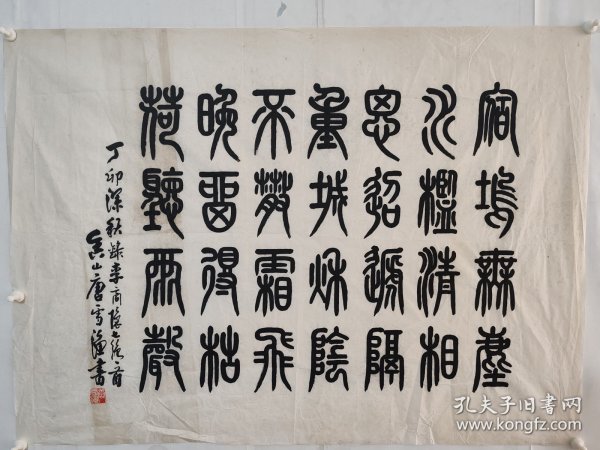 宿塢無塵
水檻清相
思迢遞隔
重城秌陰
不散霜飛
晚留得枯
荷聽雨聲
丁卯深秋錄李商隱七絕一首
山唐雪漁書
孔夫子旧書网
www.kongfz.com